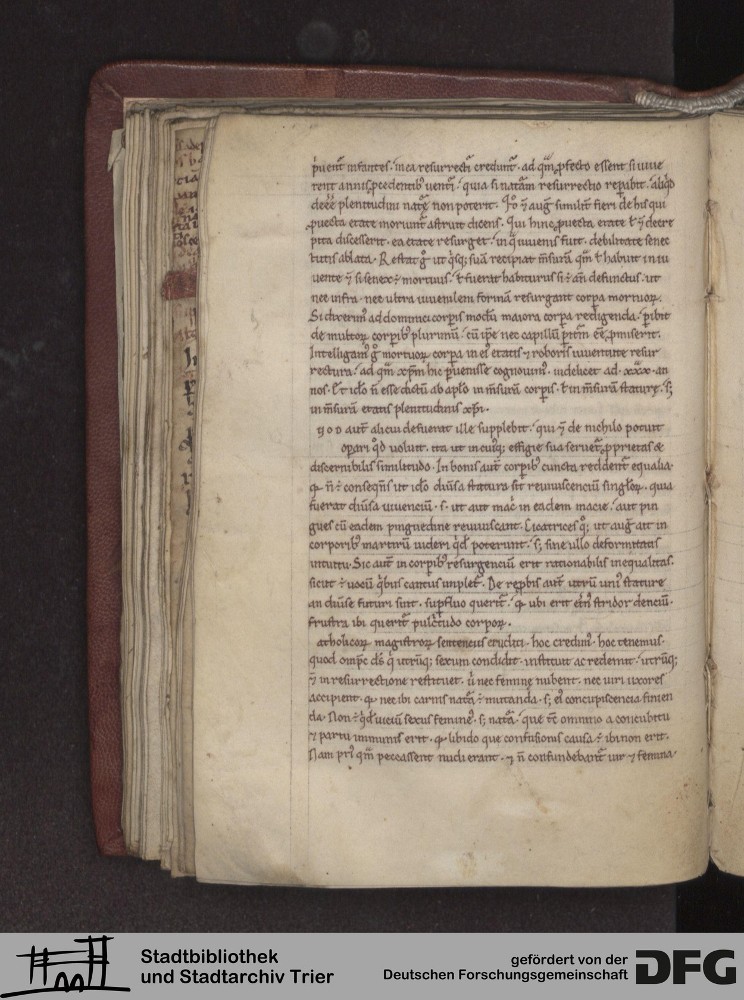 p̄uenit infantes. in ea resurrecti credunt̃. ad qm̃ ꝓfecto essent si uiue
rent annis p̄cedentibꝰ uenti. quia si natam̃ resurrectio rep̱abit. aliqd
deeē plenitudini natę non poterit. ⁊ aug̃ similit̃ fieri de his qui
puecta etate moriunt̃ astruit dicens. Qui hinc ꝓuecta etate ł ⁊ decre
pita discesserit. ea etate resurget. in q̃ iuuenis fuit. debilitate senec
tutis ablata. Restat gͦ ut qͥsq; suã recipiat m̃surã qm̃ ł habuit in iu
uente ⁊ si senex ÷ mortuus. ł fuerat habiturus si ÷ an̄ defunctus. ut
nec infra. nec ultra iuuenilem formã resurgant corp̱a mortuoꝝ.
Si dixerimꝰ ad dominici corp̱is modũ maiora corp̱a redigenda. p̱ibit
de multoꝝ corp̱ibꝰ plurimũ. cũ ip̄e nec capillũ p̱itꝝ eē ꝓmiserit.
Intelligamꝰ gͦ mortuoꝝ corp̱a in ei etatis ⁊ roboris iuuentute resur
rectura. ad qm̃ xp̄m hic p̱uenisse cognouimꝰ. uidelicet ad xxx. an
nos. ł ido n̄ esse dictũ ab ap̄lo in m̃surã corp̱is. ł in m̃surã staturę. s;
in m̃surã etatis plenitudinis xp̄i.
qod aut̃ alicui defuerat ille supplebit. qui ⁊ de nichilo potuit
op̱ari qͦd uoluit. ita ut in cuiq; effigie sua seruet̃ ꝓprietas &
discernibilis similitudo. In bonis aut̃ corp̱ibꝰ cuncta reddent̃ equalia.
ꝙ n̄ ÷ conseqñs ut ido diũsa statura sit reuiuiscenciũ singłoꝝ. quia
fuerat diũsa uiuenciũ. s. ut aut mac̃ in eadem macie. aut pin
gues cũ eadem pinguedine reuiuiscant. Cicatrices qͦ; ut aug̃ ait in
corporibꝰ martirũ uideri qͥd poterunt. s; sine ullo deformitatis
intuitu. Sic aut̃ in corp̱ibꝰ resurgenciũ erit rationabilis inequalitas.
sicut ÷ uocũ qͥbus cantus implet̃. De rep̱bis aut̃ utrũ uniꝰ stature
an diũse futuri sint. supfluo querit̃. ꝙ ubi erit etñs stridor denciũ.
frustra ibi querit̃ pulc̃tudo corporꝝ.
atholicoꝝ magistroꝝ sentenciis eruditi. hoc credimꝰ. hoc tenemus.
quod omp̄c ds̄ qͥ utrũq; sexum condidit. instituit ac redemit. utrũq;
⁊ in resurrectione restituet. ũ nec feminę nubent. nec uiri uxores
accipient. ꝙ nec ibi carnis nat̃a ÷ mutanda. s; ei concupiscencia finien
da. Non ÷ qͥd uiciũ sexus femineꝰ. s; nat̃a. que tc̄ omnino a concubitu
⁊ partu immunis erit. ꝙ libido que confusionis causa ÷ ibi non erit.
Nam priꝰ qm̃ peccassent nudi erant. ⁊ n̄ confundebant̃ uir ⁊ femina.
Stadtbibliothek
und Stadtarchiv Trier
gefördert von der
Deutschen Forschungsgemeinschaft
DFG